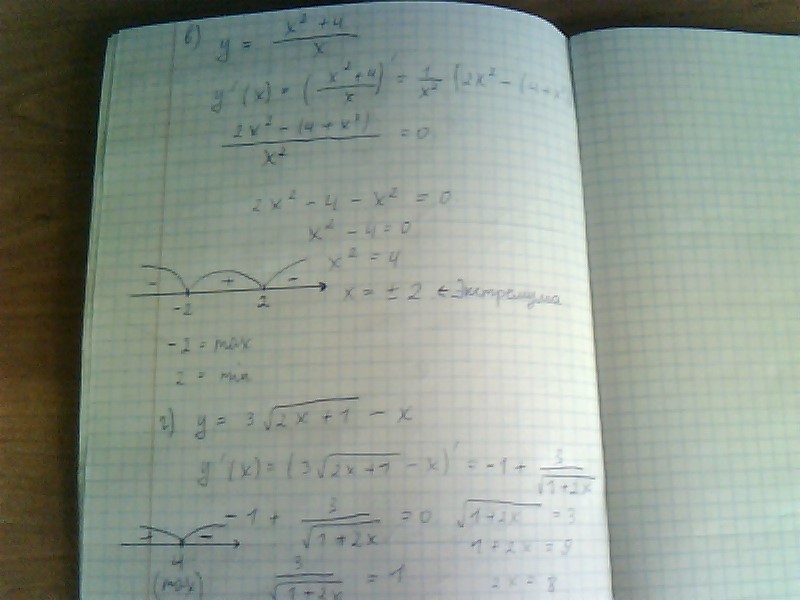 в) y = (x² + 4)/x
y'(x) = ((x² + 4)/x)' = 1/x² (2x² - (4 + x
(2x² - (4 + x²))/x² = 0
2x² - 4 - x² = 0
x² - 4 = 0
x² = 4
- + -
-2 2
x = ± 2 ← Экстремума
-2 = max
2 = min
г) y = 3√(2x + 1) - x
y'(x) = (3√(2x + 1) - x)' = -1 + 3/√(1 + 2x)
-1 + 3/√(1 + 2x) = 0 √(1 + 2x) = 3
+ -
4
(max)
1 + 2x = 9
3/√(1 + 2x) = 1
2x = 8